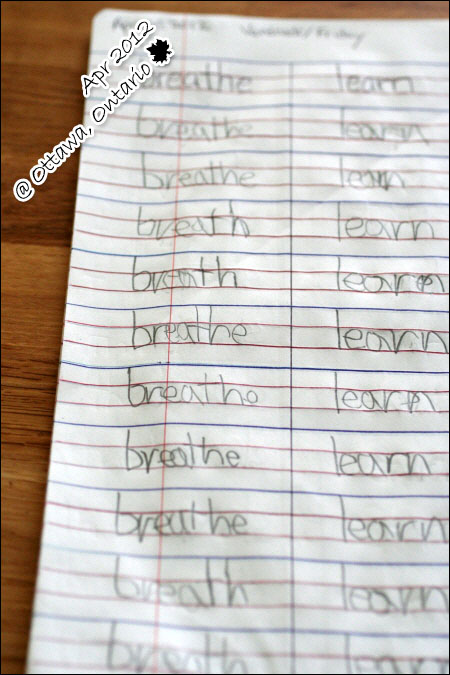 Apr 2012
@ Ottawa, Ontario
breathe learn
breathe learn
breathe learn
breath learn
breath learn
breathe learn
breathe learn
breathe learn
breathe learn
breath learn
breath learn